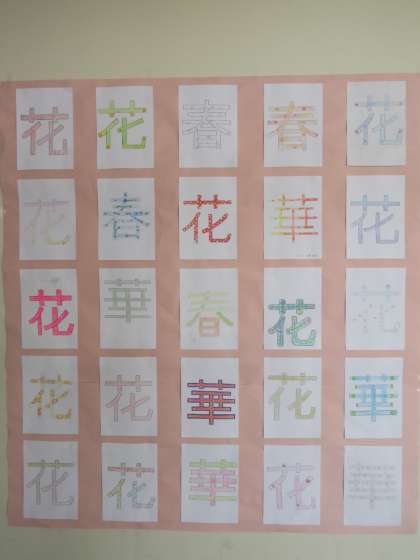 花 花 春 春 花
花 春 花 華 花
花 華 春 花 花
花 花 華 花 華
花 花 華 花 華